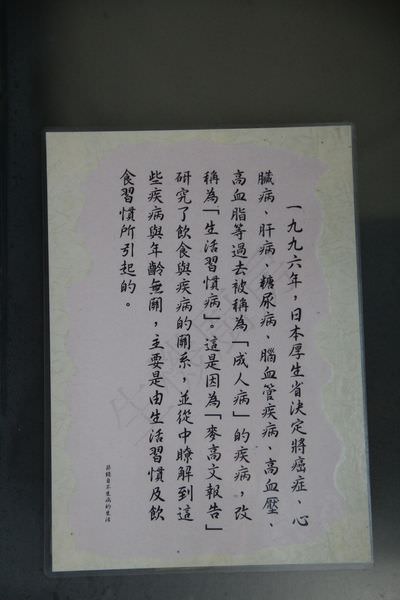 一九九六年，日本厚生省決定將癌症、心
臟病、肝病、糖尿病、腦血管疾病、高血壓、
高血脂等過去被稱為「成人病」的疾病，改
稱為「生活習慣病」。這是因為「麥高文報告」
研究了飲食與疾病的關系，並從中瞭解到這
些疾病與年齡無關，主要是由生活習慣及飲
食習慣所引起的。
節錄自不生病的生活